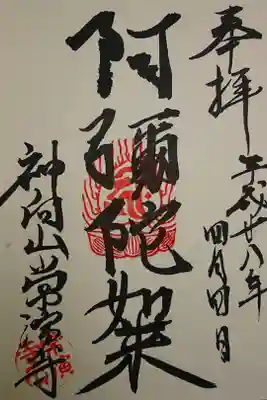 奉拝
平成廿八年
四月四日
阿彌陀如来
神向山常寺